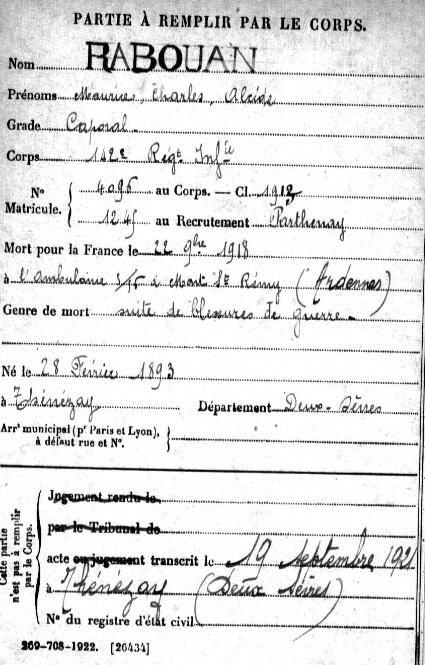 PARTIE À REMPLIR PAR LE CORPS.
Nom RABOUAN
Prénoms Maurice, Charles, Alcide
Grade Caporal
Corps 142e Régt Infie
N° Matricule. { 4096 au Corps. — Cl. 1913
1245 au Recrutement Parthenay
Mort pour la France le 22 9bre 1918
à l'ambulance 3/15 à Mont St Rémy (Ardennes)
Genre de mort suite de blessures de guerre
Né le 28 Février 1893
à Thénezay Département Deux-Sèvres
Arrt municipal (pr Paris et Lyon), à défaut rue et N°. }
Cette partie n'est pas à remplir par le Corps. {
Jugement rendu le
par le Tribunal de
acte ou jugement transcrit le 19 septembre 1921
à Thénezay (Deux Sèvres)
N° du registre d'état civil
269-708-1922. [26434]